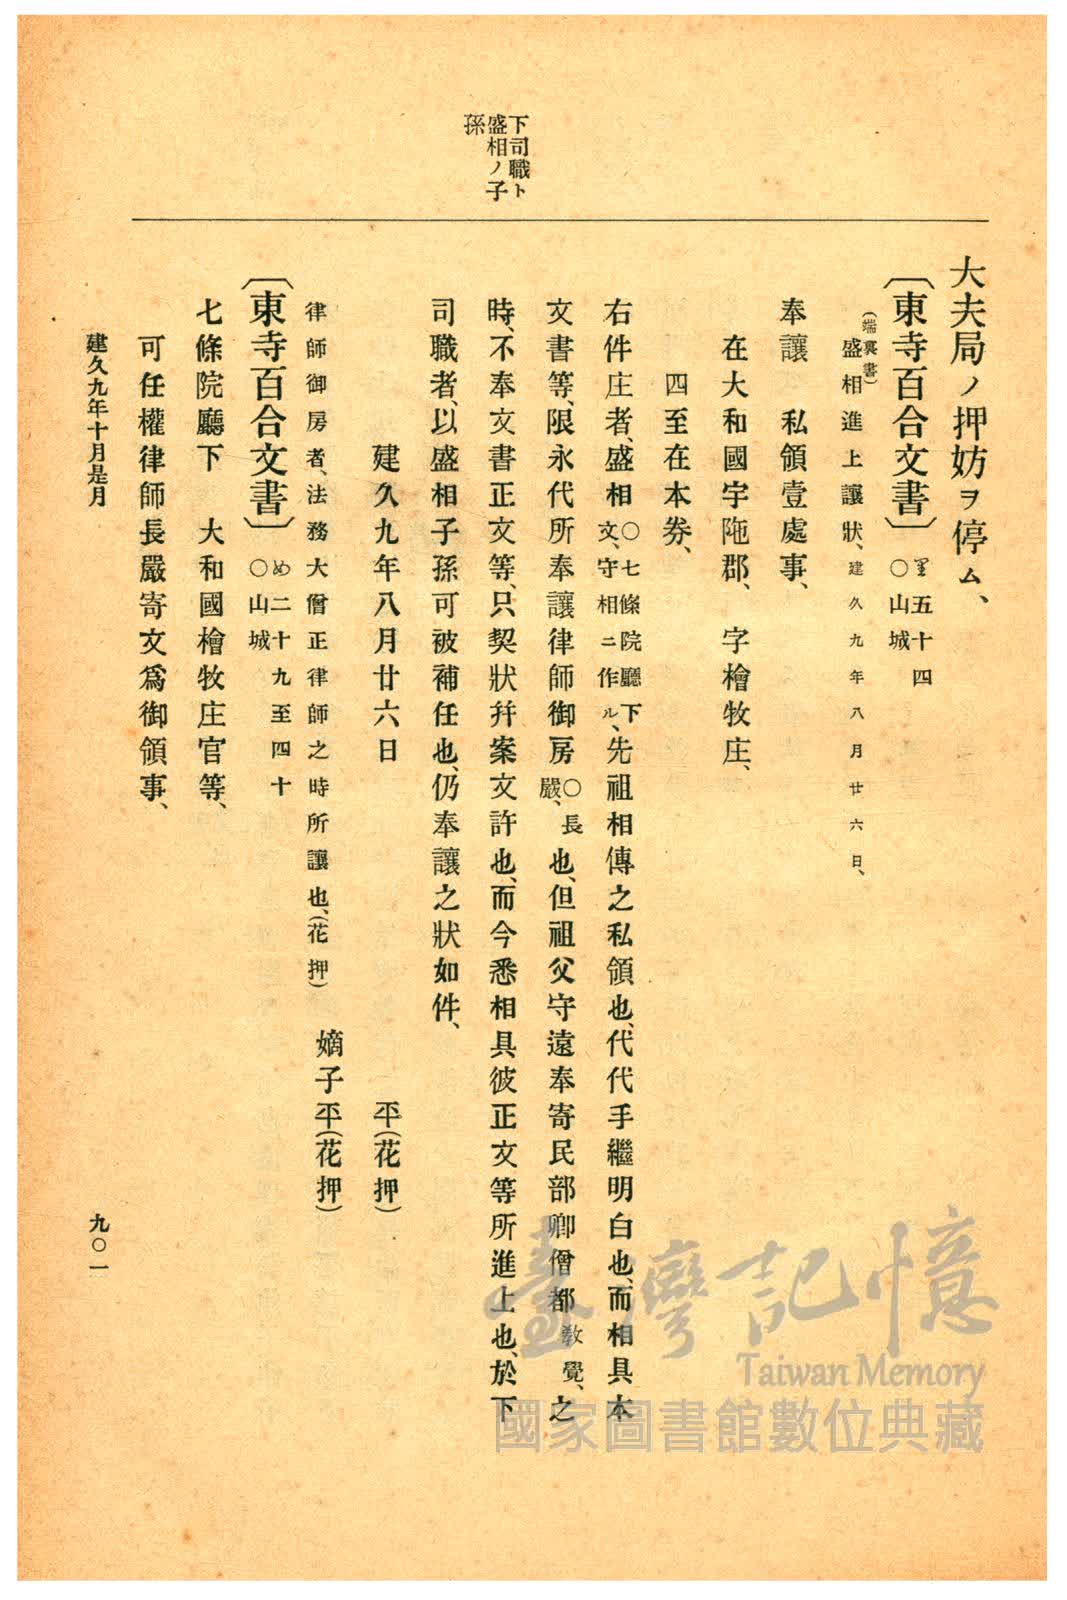 下司職ト
盛相ノ子
孫
大夫局ノ押妨ヲ停ム、
〔東寺百合文書〕 ○山城
五十四
(端裏書)
盛相進上讓狀、建久九年八月廿六日、
奉讓　私領壹處事、
在大和國宇陁郡、　字檜牧庄、
四至在本券、
右件庄者、盛相○七條院廳下文、守相ニ作ル、先祖相傳之私領也、代代手繼明白也、而相具本
文書等、限永代所奉讓律師御房○長嚴、也、但祖父守遠奉寄民部卿僧都敎覺、之
時、不奉文書正文等、只契狀幷案文許也、而今悉相具彼正文等所進上也、於下
司職者、以盛相子孫可被補任也、仍奉讓之狀如件、
建久九年八月廿六日　平(花押)
嫡子平(花押)
律師御房者、法務大僧正律師之時所讓也、(花押)
〔東寺百合文書〕 ○山城
め二十九至四十
七條院廳下　大和國檜牧庄官等、
可任權律師長嚴寄文爲御領事、
建久九年十月是月
九〇一
臺灣記憶
Taiwan Memory
國家圖書館數位典藏